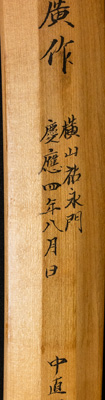 廣作
横山祐永門
慶應四年八月日
中直